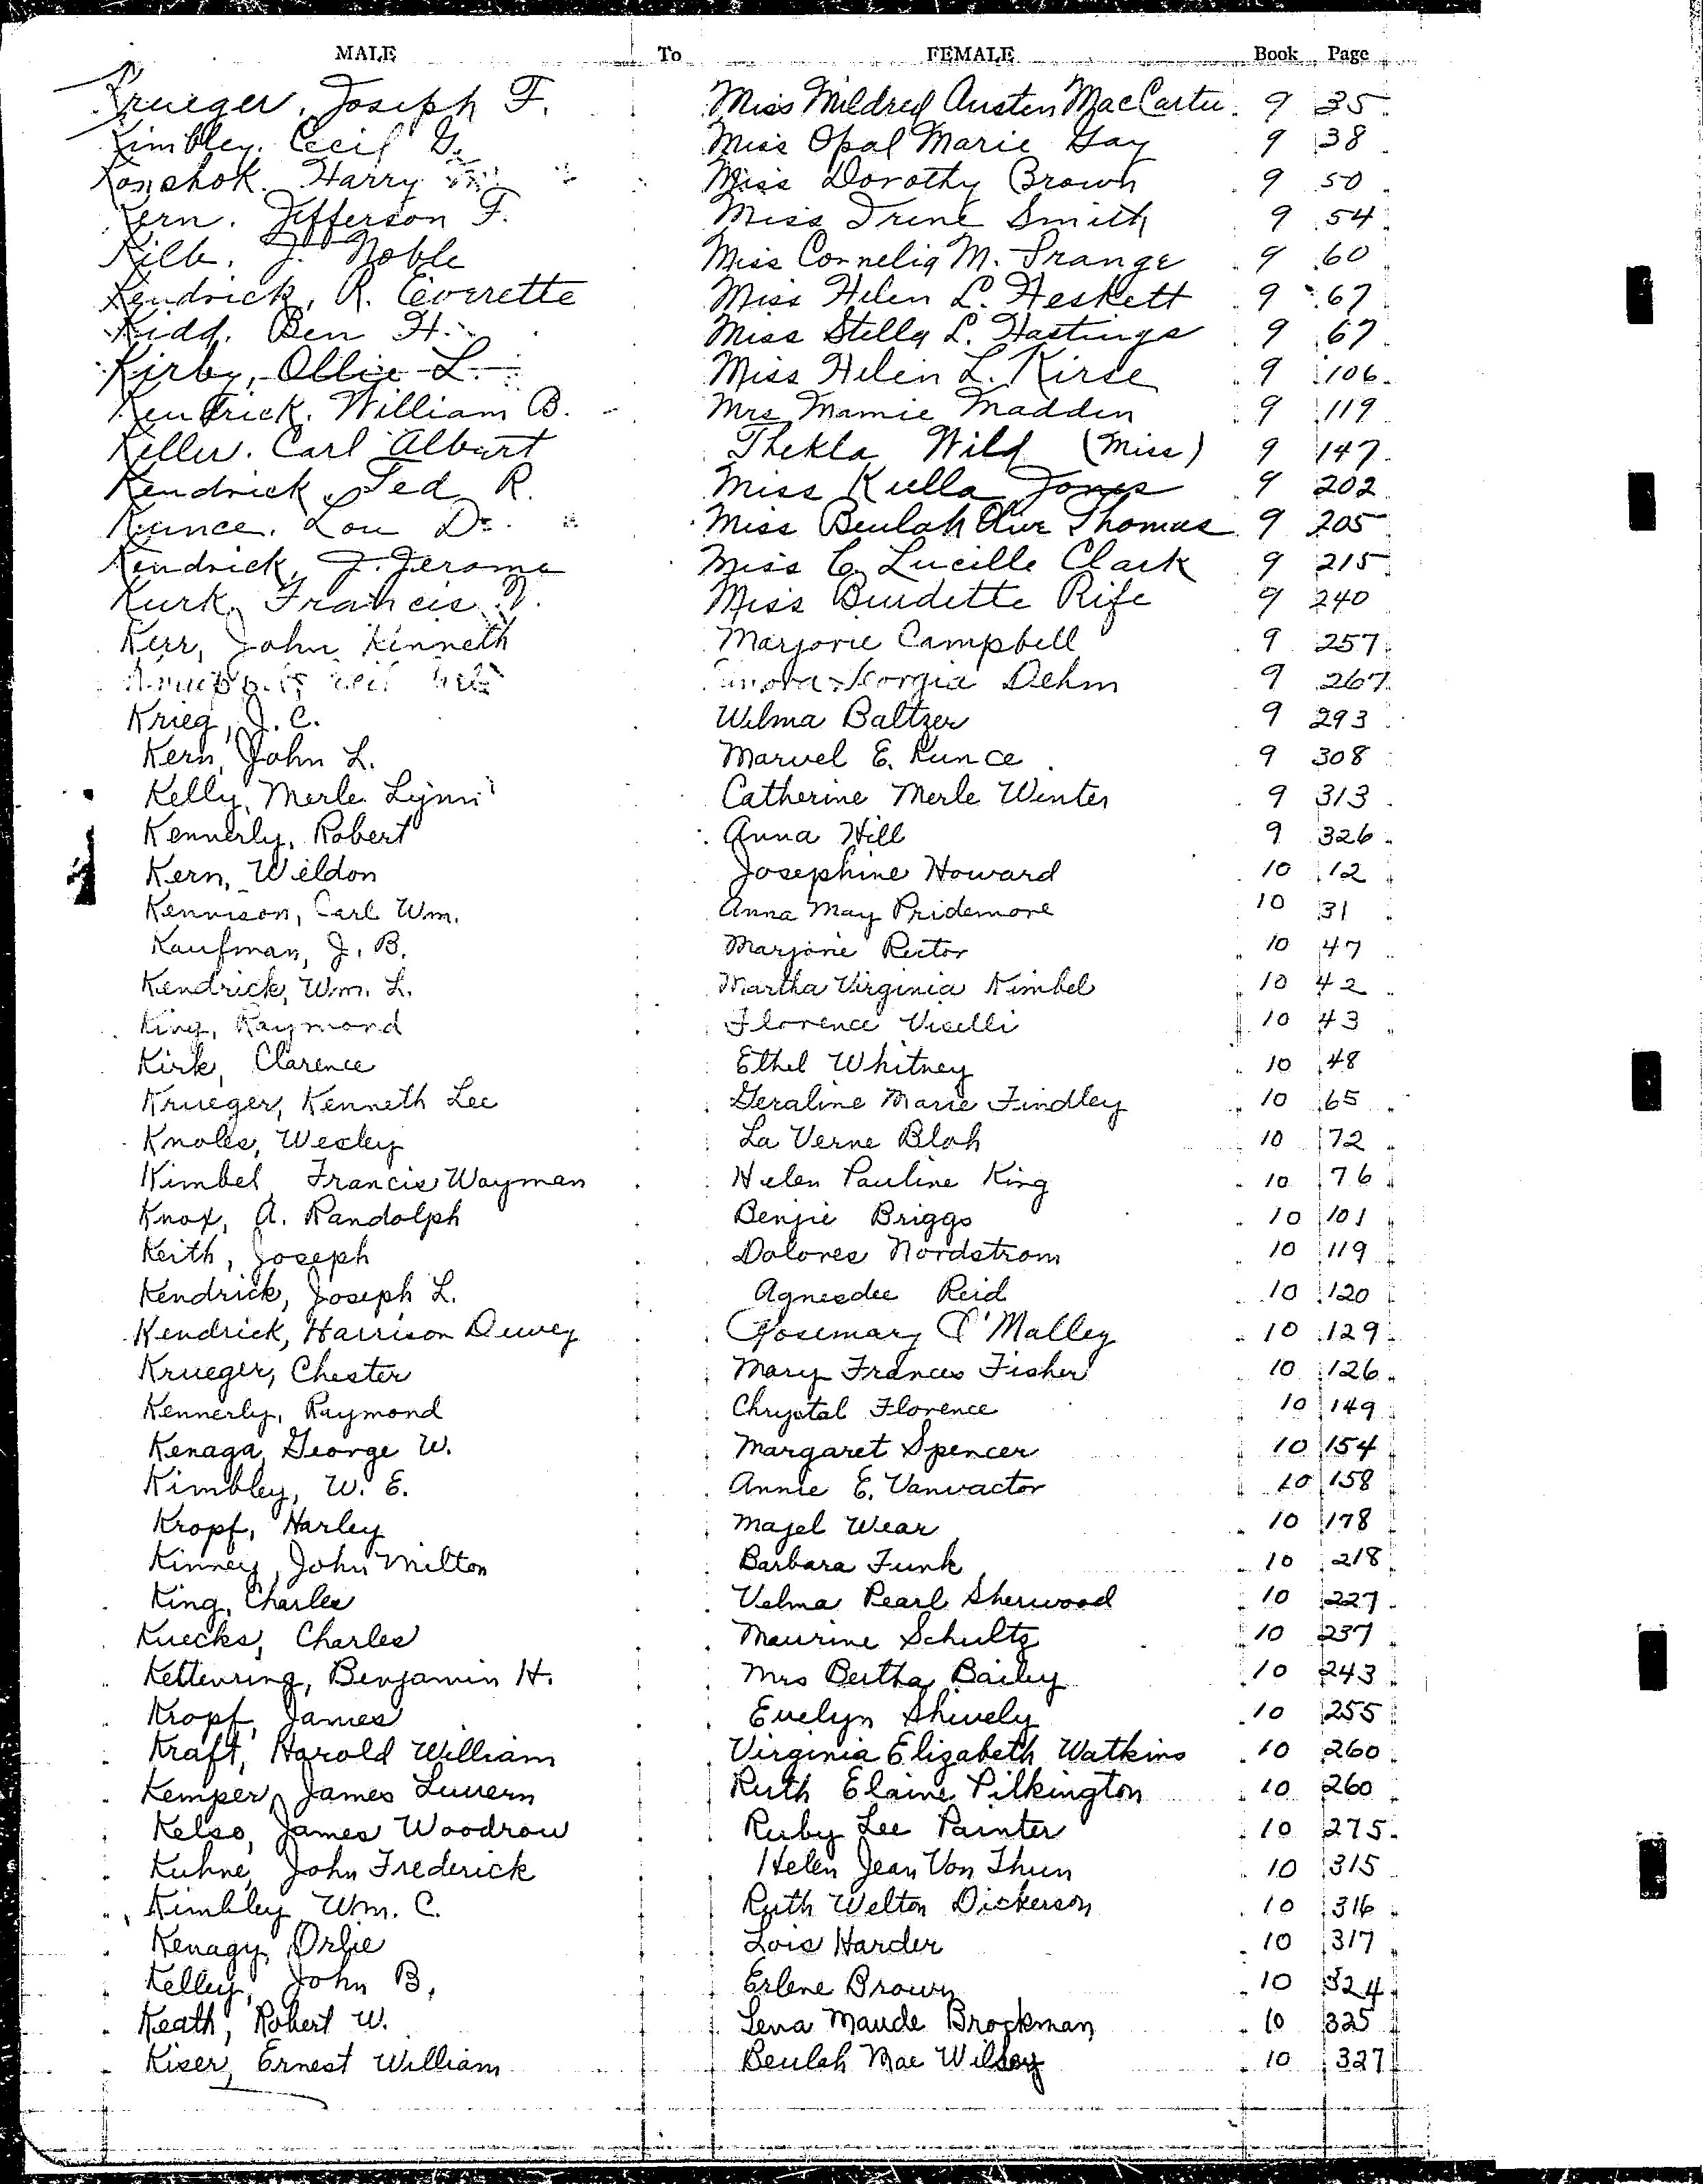 MALE To FEMALE Book Page
Krueger, Joseph F. Miss Mildred Austen MacCarter 9 35
Kimbley, Cecil G. Miss Opal Marie Gay 9 38
Konshok, Harry Miss Dorothy Brown 9 50
Kern, Jefferson F. Miss Irene Smith 9 54
Kilb, J. Noble Miss Cornelia M. Prange 9 60
Kendrick, R. Everette Miss Helen L. Heskett 9 67
Kidd, Ben H. Miss Stella L. Hastings 9 67
Kirby, Ollie L. Miss Helen L. Kirse 9 106
Kendrick, William B. Mrs Mamie Madden 9 119
Keller, Carl Albert Thekla Wild (Miss) 9 147
Kendrick, Ted R. Miss Kella Jones 9 202
Kunce, Lou D. Miss Beulah Olive Thomas 9 205
Kendrick, J. Jerome Miss C. Lucille Clark 9 215
Kurk, Francis Miss Burdette Rife 9 240
Kerr, John Kenneth Marjorie Campbell 9 257
Georgia Dehm 9 267
Krieg, J. C. Wilma Baltzer 9 293
Kern, John L. Marvel E. Kunce 9 308
Kelly, Merle Lynn Catherine Merle Winter 9 313
Kennerly, Robert Anna Hill 9 326
Kern, Weldon Josephine Howard 10 12
Kennison, Carl Wm. Anna May Pridemore 10 31
Kaufman, J. B. Marjorie Rector 10 47
Kendrick, Wm. L. Martha Virginia Kimbel 10 42
King, Raymond Florence Viselli 10 43
Kirk, Clarence Ethel Whitney 10 48
Krueger, Kenneth Lee Geraline Marie Findley 10 65
Knoles, Wesley La Verne Blah 10 72
Kimbel, Francis Wayman Helen Pauline King 10 76
Knox, A. Randolph Benjie Briggs 10 101
Keith, Joseph Dolores Nordstrom 10 119
Kendrick, Joseph L. Agnesdee Reid 10 120
Kendrick, Harrison Dewey Rosemary O'Malley 10 129
Krueger, Chester Mary Frances Fisher 10 126
Kennerly, Raymond Chrystal Florence 10 149
Kenaga, George W. Margaret Spencer 10 154
Kimbley, W. E. Annie E. Vanvactor 10 158
Kropf, Harley Mazel Wear 10 178
Kinney, John Milton Barbara Funk 10 218
King, Charles Velma Pearl Sherwood 10 227
Kuecks, Charles Maurine Schultz 10 237
Kettenring, Benjamin H. Mrs Bertha Bailey 10 243
Kropf, James Evelyn Shively 10 255
Kraft, Harold William Virginia Elizabeth Watkins 10 260
Kemper, James Luvern Ruth Elaine Pilkington 10 260
Kelso, James Woodrow Ruby Lee Painter 10 275
Kuhne, John Frederick Helen Jean Von Thun 10 315
Kimbley, Wm. C. Ruth Welton Dickerson 10 316
Kenagy, Orlie Lois Harder 10 317
Kelley, John B. Erlene Brown 10 324
Keath, Robert W. Lena Maude Brockman 10 325
Kiser, Ernest William Beulah Mae Wilsey 10 327